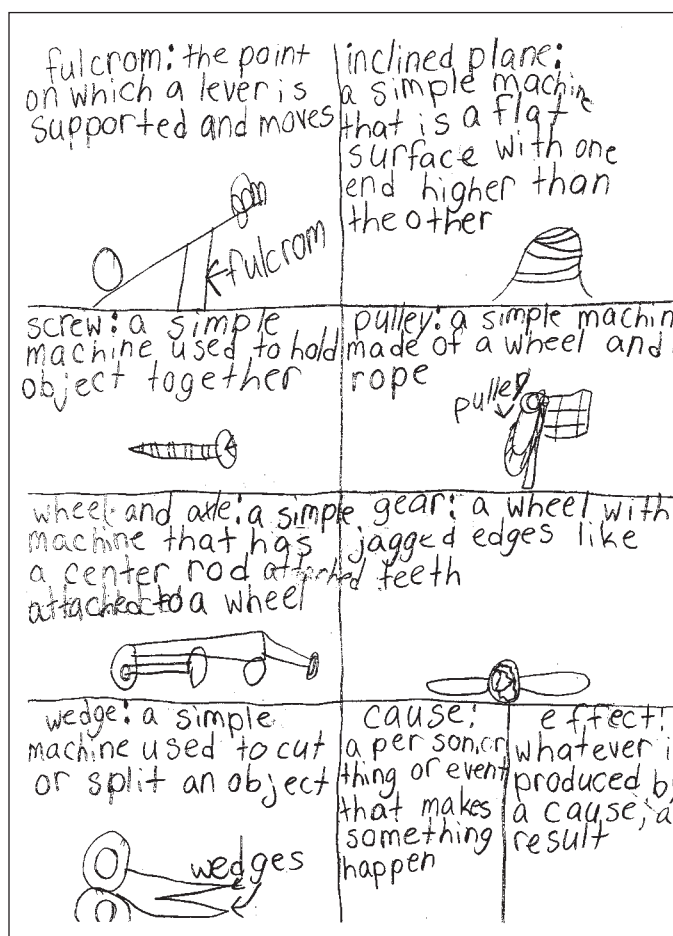 fulcrom: the point
on which a lever is
supported and moves
fulcrom
inclined plane:
a simple machine
that is a flat
surface with one
end higher than
the other
screw: a simple
machine used to hold
object together
pulley: a simple machin
made of a wheel and
rope
pulley
wheel and axle: a simple
machine that has
a center rod attached
attached to a wheel
gear: a wheel with
jagged edges like
teeth
wedge: a simple
machine used to cut
or split an object
wedges
cause:
a person, or
thing or event
that makes
something
happen
effect:
whatever i
produced b
a cause; a
result